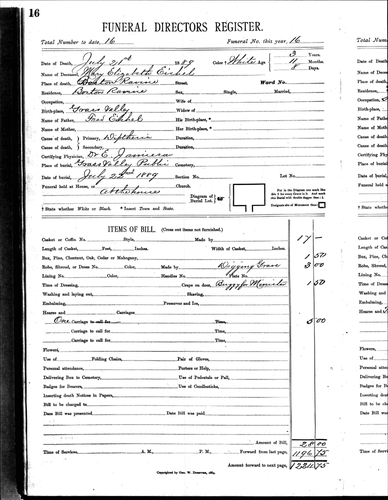 16
FUNERAL DIRECTORS REGISTER.
Total Number to date, 16 Funeral No. this year, 16
Date of Death, July 21st 1889 Color † White Age 3 Years. 11 Months. 8 Days.
Name of Deceased, Mary Elizabeth
Place of Death, Boston Ravine Street. Ward No.
Residence, Boston Ravine Sex, Single, Married,
Occupation, Wife of
Birthplace, Grass Valley Widow of
Name of Father, Fred His Birth-place, *
Name of Mother, Her Birth-place, *
Cause of death, Primary, Duration,
Cause of death, Secondary, Duration,
Certifying Physician, Dr E.
Place of burial, Grass Valley Public Cemetery,
Date of burial, July 22nd 1889 Section No. Lot No.
Funeral held at House, or at the house Church.
Diagram of Burial Lot.
† State whether White or Black. * Insert Town and State.
ITEMS OF BILL. (Cross out items not furnished.)
Casket or Coffin No. Style, Made by 17 —
Length of Casket, Feet, Inches. Width of Casket, Inches.
Box, Pine, Chestnut, Oak, Cedar or Mahogany, 1 50
Robe, Shroud, or Dress No. Color, Made by Digging Grave 3 00
Lining No. Color, Handles No. Plate No.
Time of Dressing, Crape on door, Buggy for Minister 1 50
Washing and laying out, Shaving,
Embalming, Preserver and Ice,
Hearse and Carriages
One Carriage to call for Time, 5 00
Carriage to call for Time,
Carriage to call for Time,
Flowers,
Use of Folding Chairs, Pair of Gloves,
Personal attendance, Porters or Help,
Delivering Box to Cemetery, Use of Pedestals or Pall,
Badges for Bearers, Use of Candlesticks,
Inserting death Notices in Papers,
Bill to be charged to
Date Bill was presented Date Bill was paid
Amount of Bill, 28 00
Time of Services, A. M., P. M. Forward from last page, 75
Amount forward to next page, 75
Copyrighted by Geo. W.